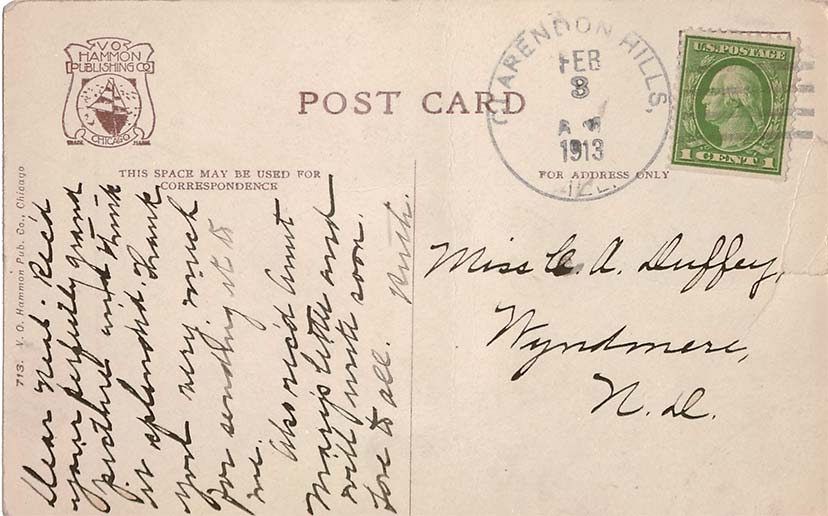 V.O.
HAMMON
PUBLISHING CO
CHICAGO
TRADE MARK
POST CARD
CLARENDON HILLS,
ILL.
FEB
3
A M
1913
U.S. POSTAGE
1 CENT 1
THIS SPACE MAY BE USED FOR
CORRESPONDENCE
FOR ADDRESS ONLY
713. V. O. Hammon Pub. Co., Chicago
Dear Neal. Rec'd
your perfectly grand
picture and think
it splendid. Thank
you very much
for sending it to
me.
Also rec'd Aunt
Mary's letter and
will write soon.
Love to all. Ruth.
Miss C. A. Duffey,
Wyndmere,
N. D.